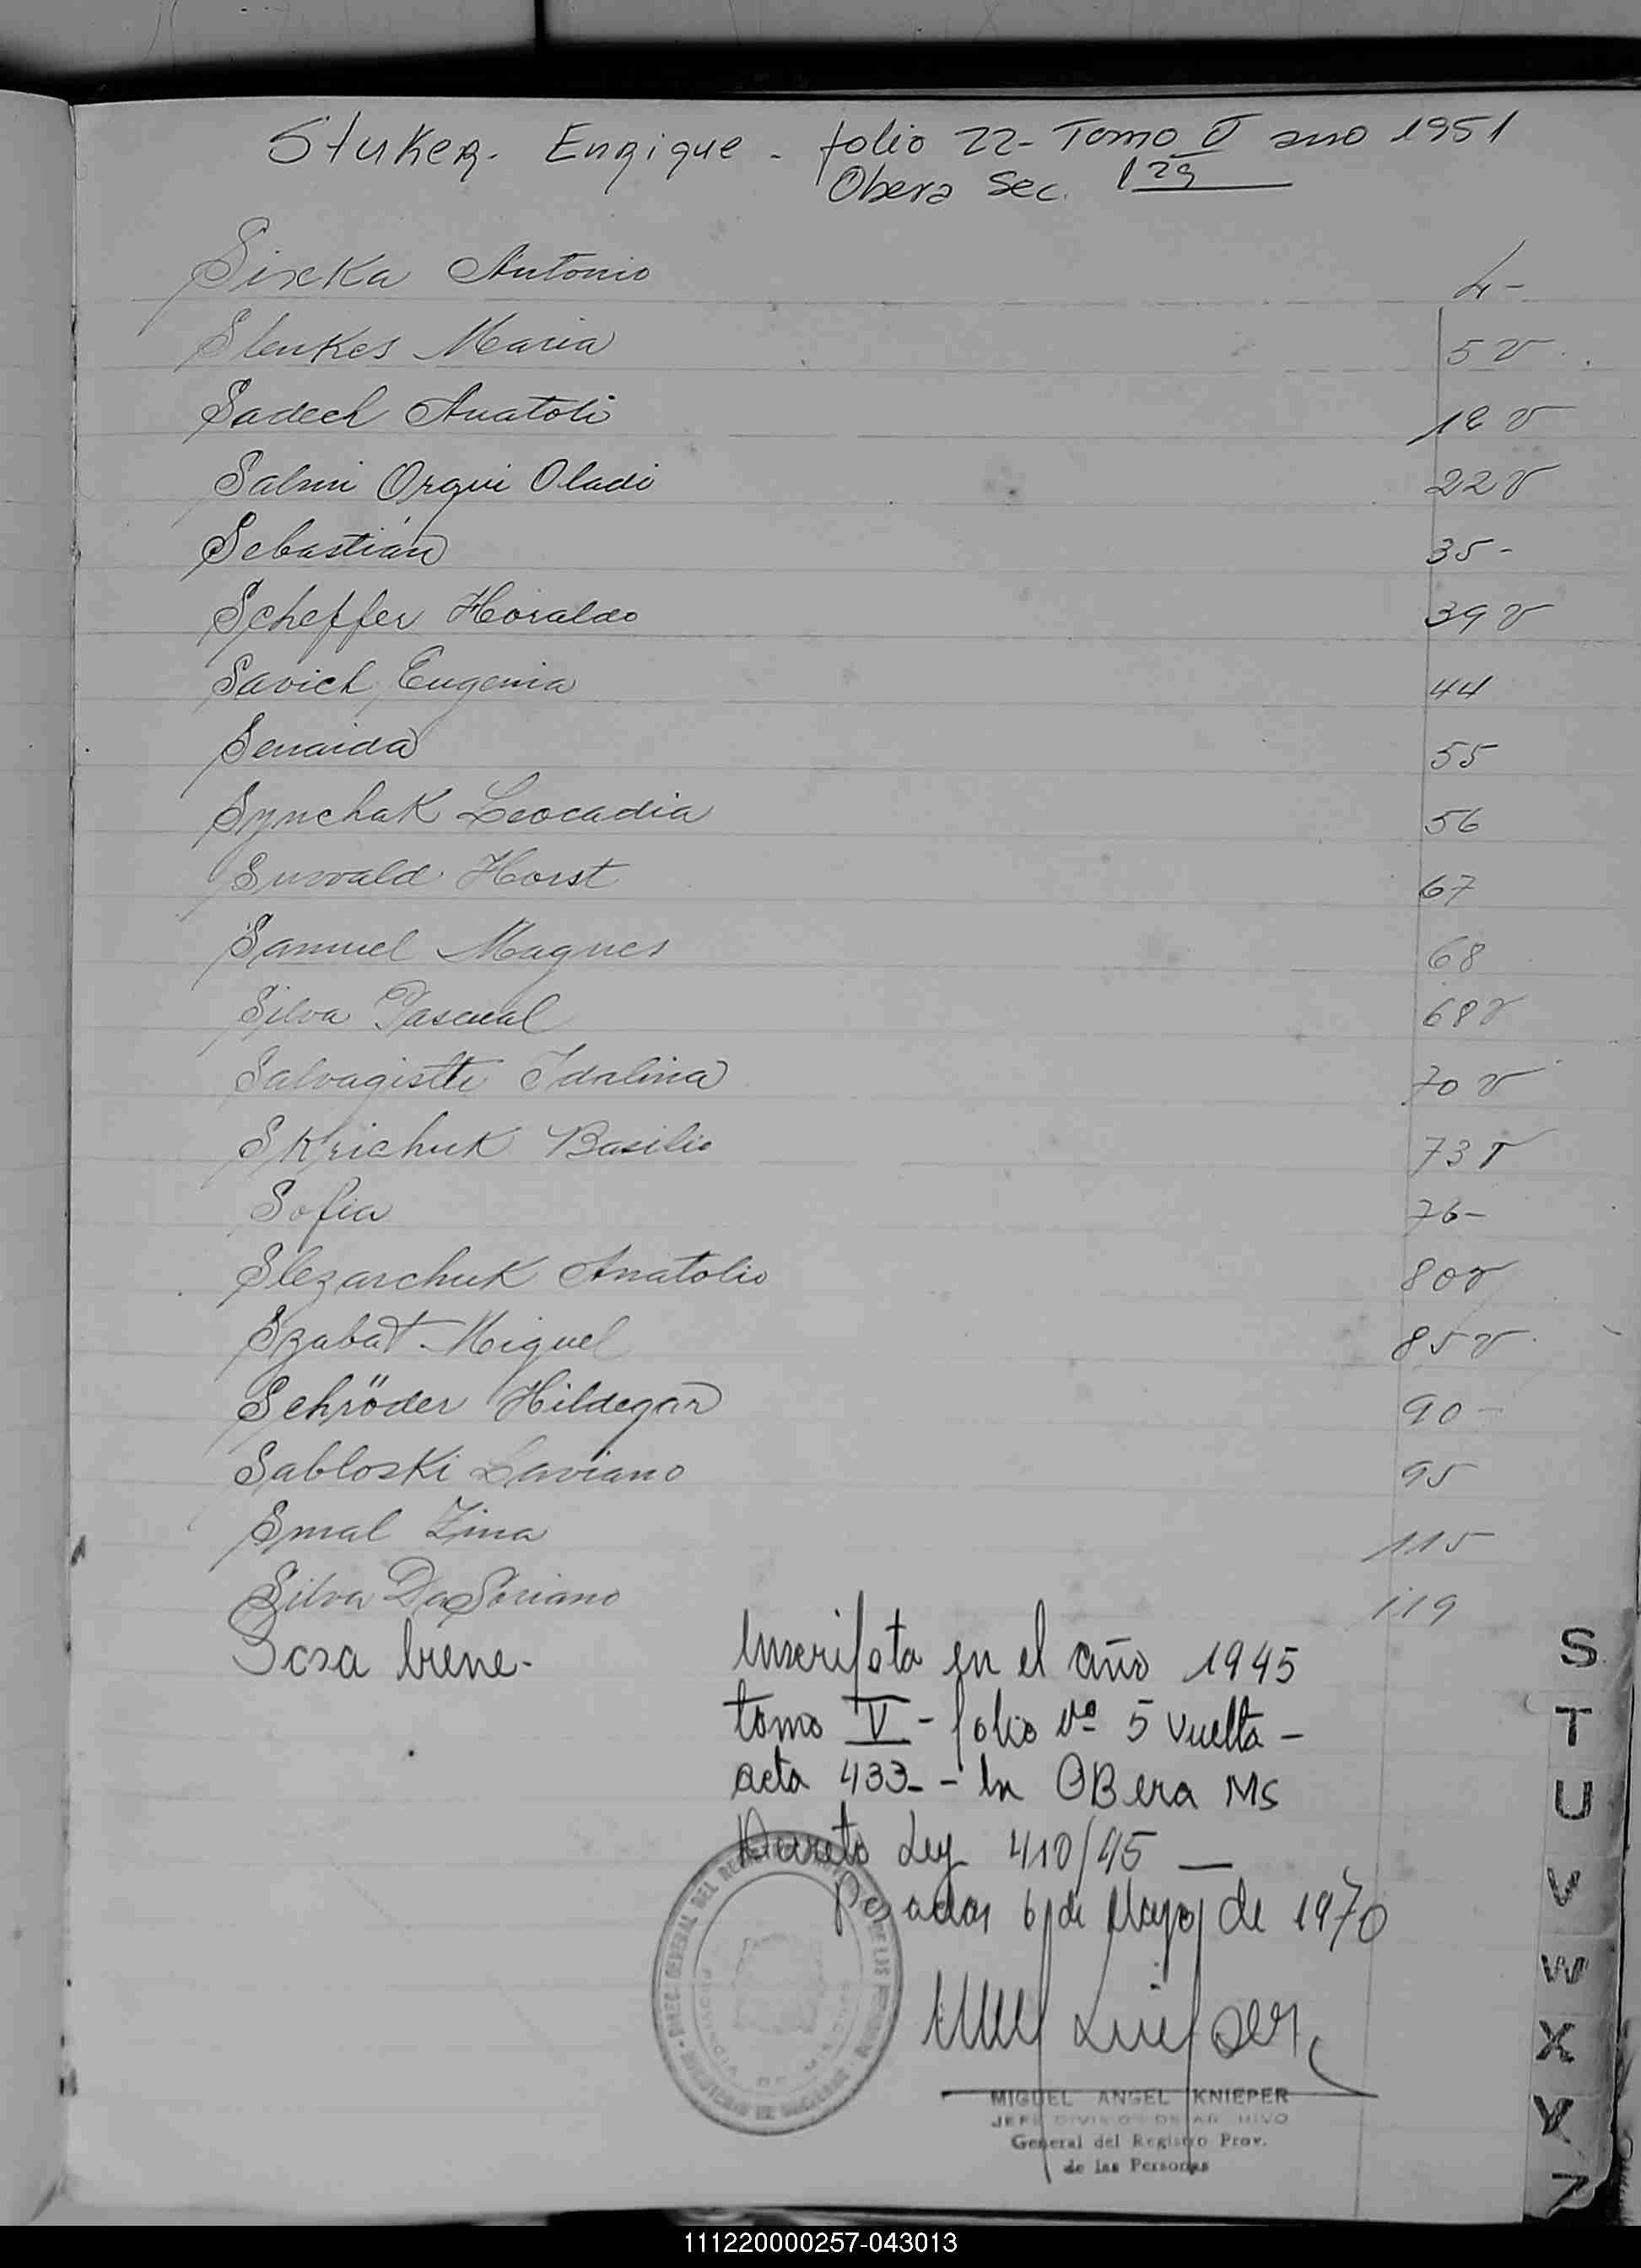 Stuker. Enrique - folio 22- Tomo V ano 1951
Obera Sec. 1ra
Sixka Antonio 4-
Slenkes Maria 5 v
Sadech Anatoli 12 v
Salmi Orqui Oladi 22 v
Sebastián 35-
Scheffer Horaldo 39 v
Savich Eugenia 44
Senaida 55
Synchak Leocadia 56
Suwald Horst 67
Samuel Magnes 68
Silva Pascual 68 v
Salvagistti Idalina 70 v
Skrichuk Basilio 73 v
Sofia 76-
Slezarchuk Anatolio 80 v
Szabat Miguel 85 v
Schröder Hildegar 90-
Sabloski Laviano 95
Smal Zina 115
Silva Da Soriano 119
Sosa Irene- Inscripta en el año 1945
tomo V - folio Nº 5 vuelta -
acta 433- - En OBera Ms
Decreto Ley 410/45 —
Posadas 6 de Mayo de 1970
MIGUEL ANGEL KNIEPER
JEFE DIVISION DE ARCHIVO
General del Registro Prov.
de las Personas
S
T
U
V
W
X
Y
Z
111220000257-043013